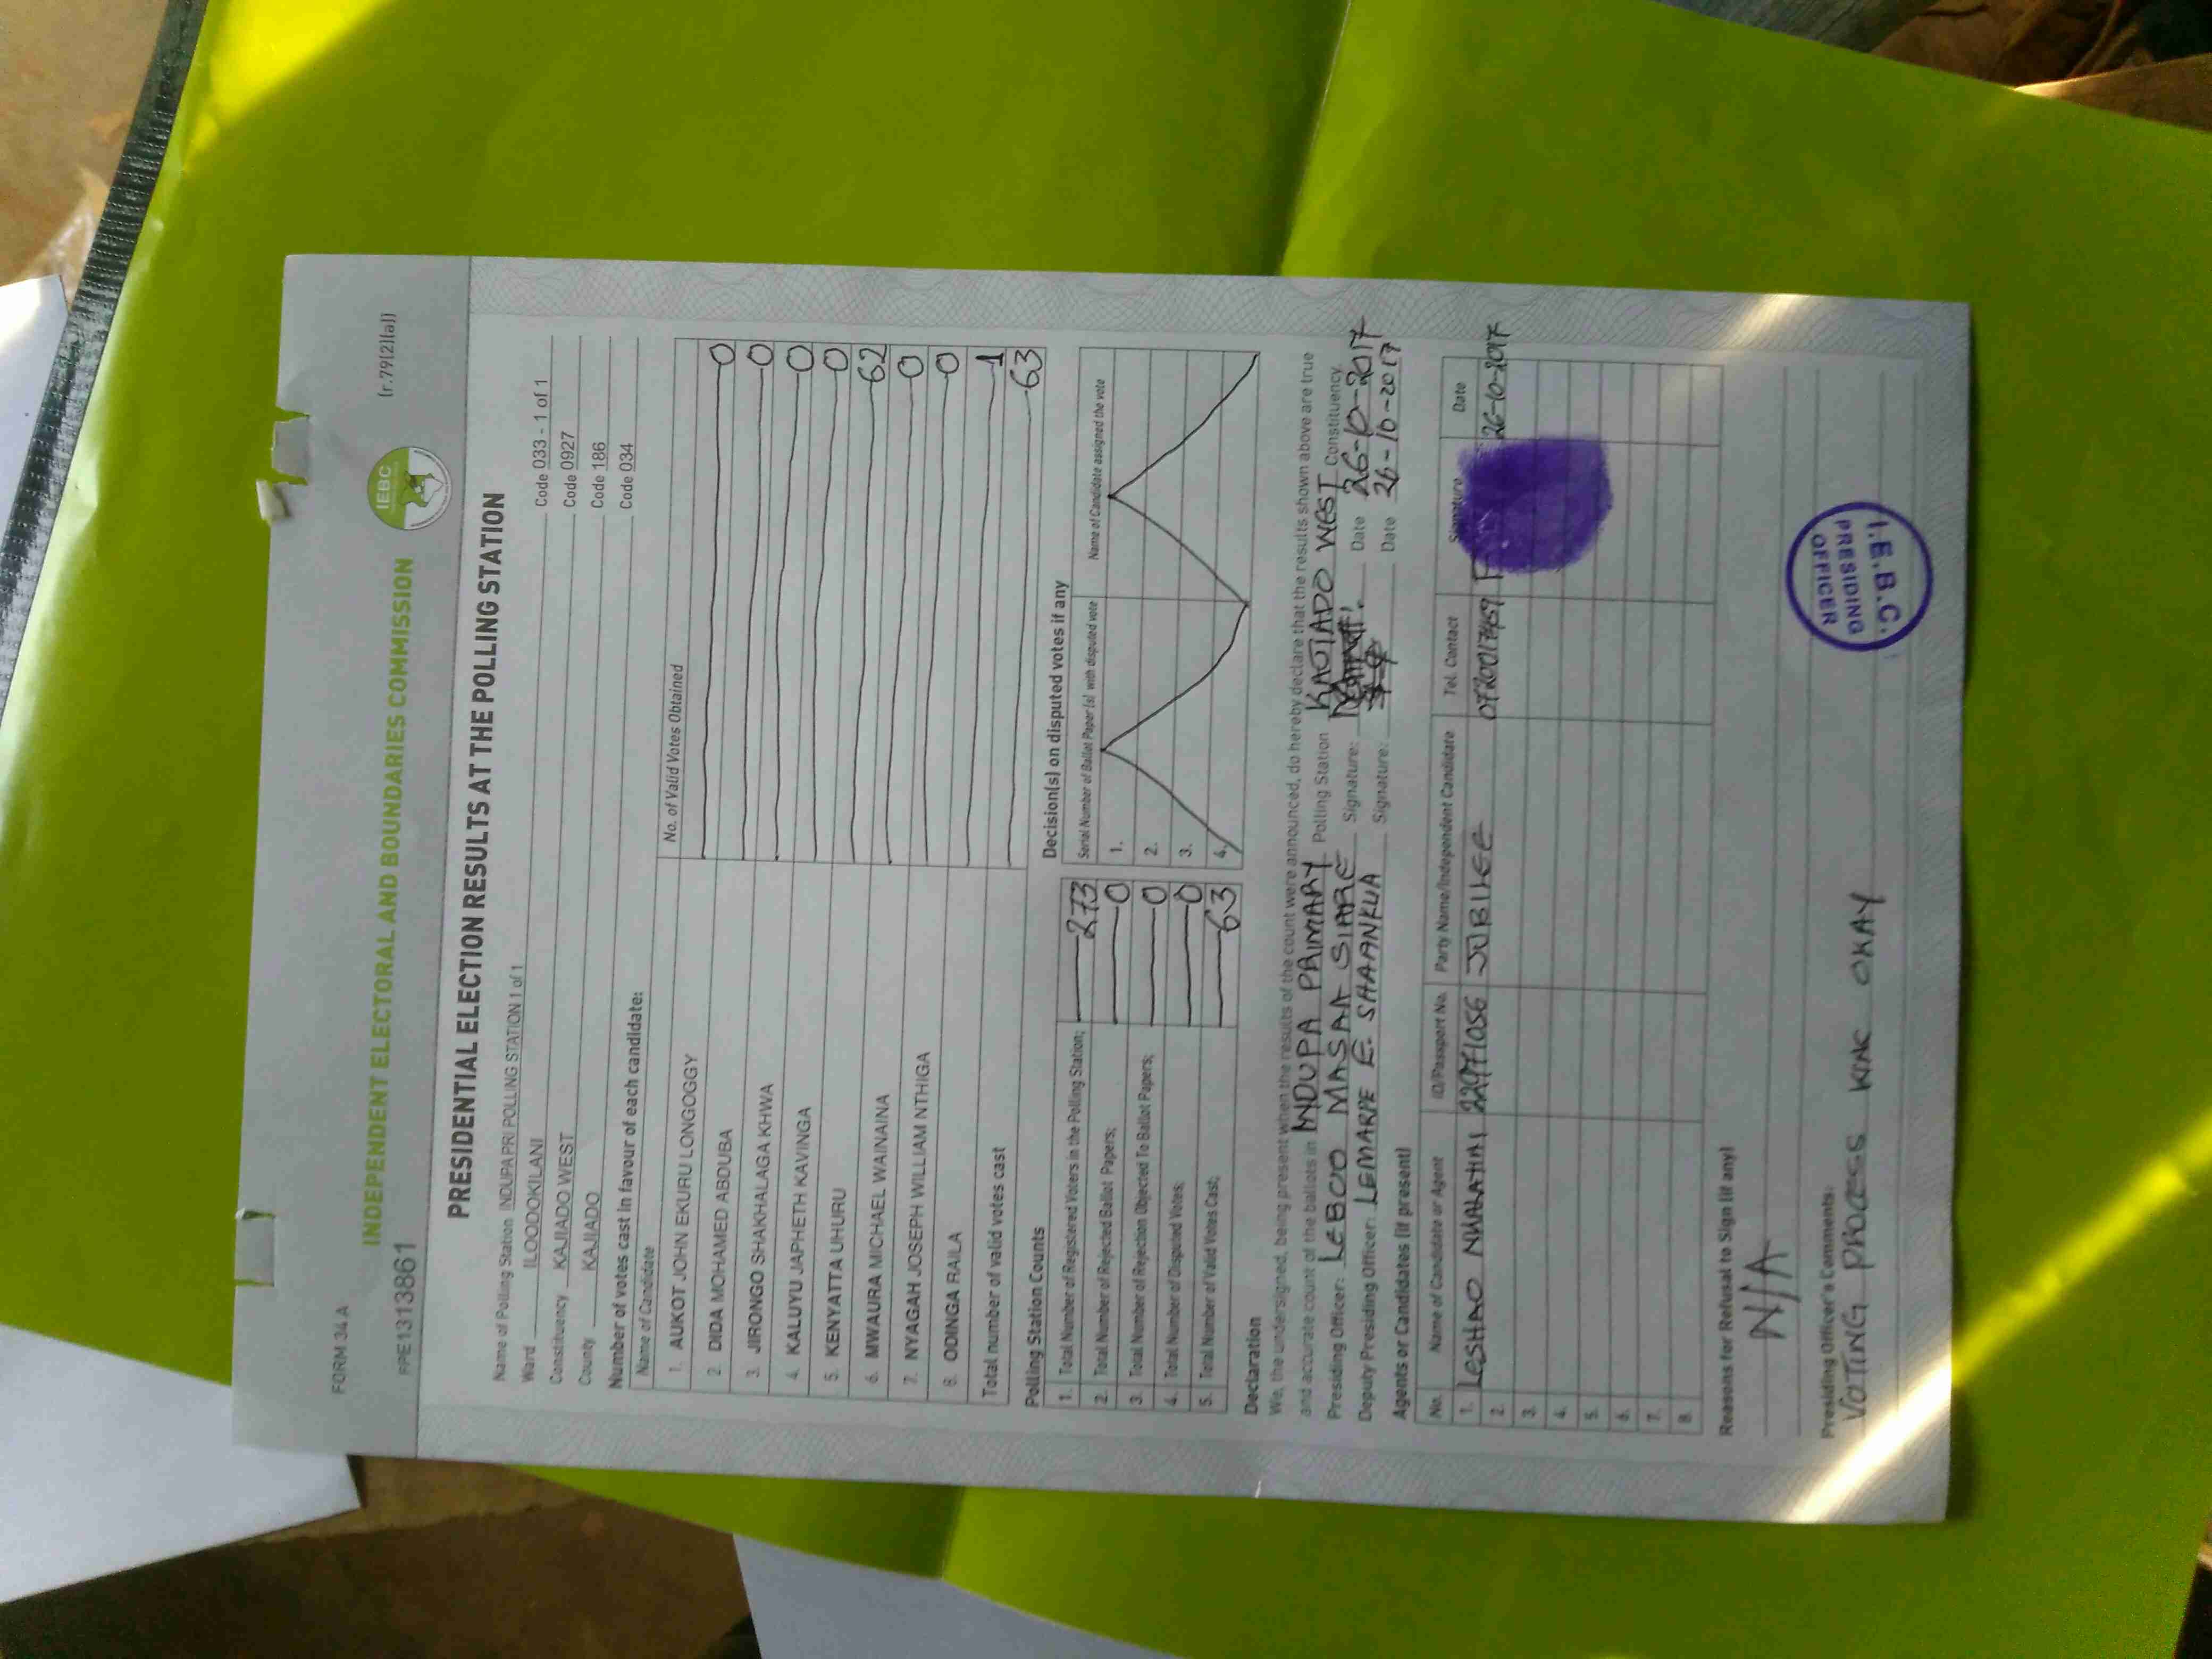 FORM 34 A
(r.79(2)(a))
INDEPENDENT ELECTORAL AND BOUNDARIES COMMISSION
IEBC
PPE1313861
PRESIDENTIAL ELECTION RESULTS AT THE POLLING STATION
Name of Polling Station INDUPA PRI POLLING STATION 1 of 1 Code 033 - 1 of 1
Ward ILOODOKILANI Code 0927
Constituency KAJIADO WEST Code 186
County KAJIADO Code 034
Number of votes cast in favour of each candidate:
Name of Candidate No. of Valid Votes Obtained
1. AUKOT JOHN EKURU LONGOGGY 0
2. DIDA MOHAMED ABDUBA 0
3. JIRONGO SHAKHALAGA KHWA 0
4. KALUYU JAPHETH KAVINGA 0
5. KENYATTA UHURU 62
6. MWAURA MICHAEL WAINAINA 0
7. NYAGAH JOSEPH WILLIAM NTHIGA 0
8. ODINGA RAILA 1
Total number of valid votes cast 63
Polling Station Counts
1. Total Number of Registered Voters in the Polling Station; 273
2. Total Number of Rejected Ballot Papers; 0
3. Total Number of Rejection Objected To Ballot Papers; 0
4. Total Number of Disputed Votes; 0
5. Total Number of Valid Votes Cast; 63
Decision(s) on disputed votes if any
Serial Number of Ballot Paper (s) with disputed vote Name of Candidate assigned the vote
1.
2.
3.
4.
Declaration
We, the undersigned, being present when the results of the count were announced, do hereby declare that the results shown above are true
and accurate count of the ballots in INDUPA PRIMARY Polling Station KAJIADO WEST Constituency
Presiding Officer: LEBOO MASAA SIARE Signature: Date 26-10-2017
Deputy Presiding Officer: LEMARPE E. SHAANKUA Signature: Date 26-10-2017
Agents or Candidates (if present)
No. Name of Candidate or Agent ID/Passport No. Party Name/Independent Candidate Tel. Contact Signature Date
1. LESHAO 22971056 JUBILEE 26-10-2017
2.
3.
4.
5.
6.
7.
8.
Reasons for Refusal to Sign (if any)
N/A
Presiding Officer's Comments:
VOTING PROCESS WAC OKAY
I.E.B.C.
PRESIDING
OFFICER